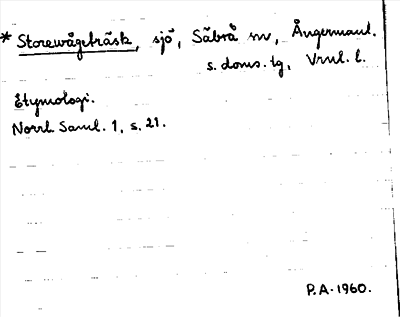 * Storewågeträsk, sjö, Säbrå sn, Ångermanl.
s. doms. tg, Vrnl. l.
Etymologi.
Norrl. Saml. 1, s. 21.
P.A. 1960.